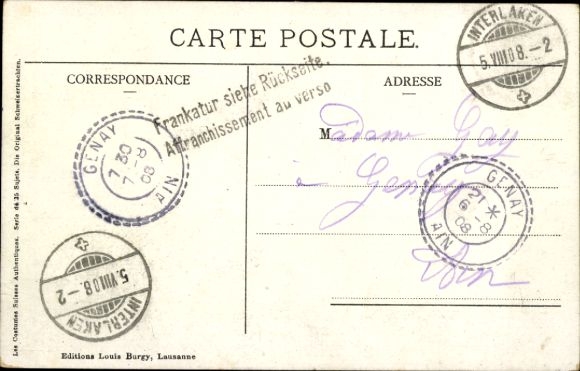 CARTE POSTALE.
INTERLAKEN
5.VIII.08.-2
CORRESPONDANCE
ADRESSE
Frankatur siehe Rückseite.
Affranchissement au verso
GENAY
7 30
7 -8
08
AIN
Madame Gay
à Genay
Ain
GENAY
12
6 -8
08
AIN
5.VIII.08.-2
INTERLAKEN
Les Costumes Suisses Authentiques. Serie de 35 Sujets. Die Original Schweizertrachten.
Editions Louis Burgy, Lausanne